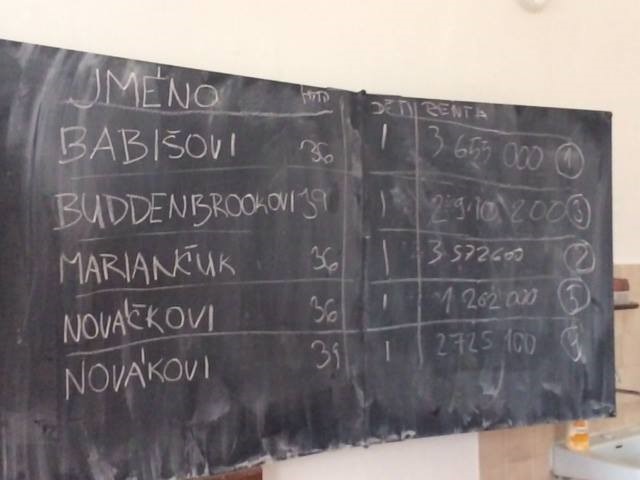 JMÉNO DĚTI RENTA
BABIŠOVI 36 1 3 653 000 1
BUDDENBROOKOVI 39 1 2 910 200 3
MARIANČUK 36 1 3 572600 2
NOVÁČKOVI 36 1 1 202 000 5
NOVÁKOVI 39 1 2725 100 4